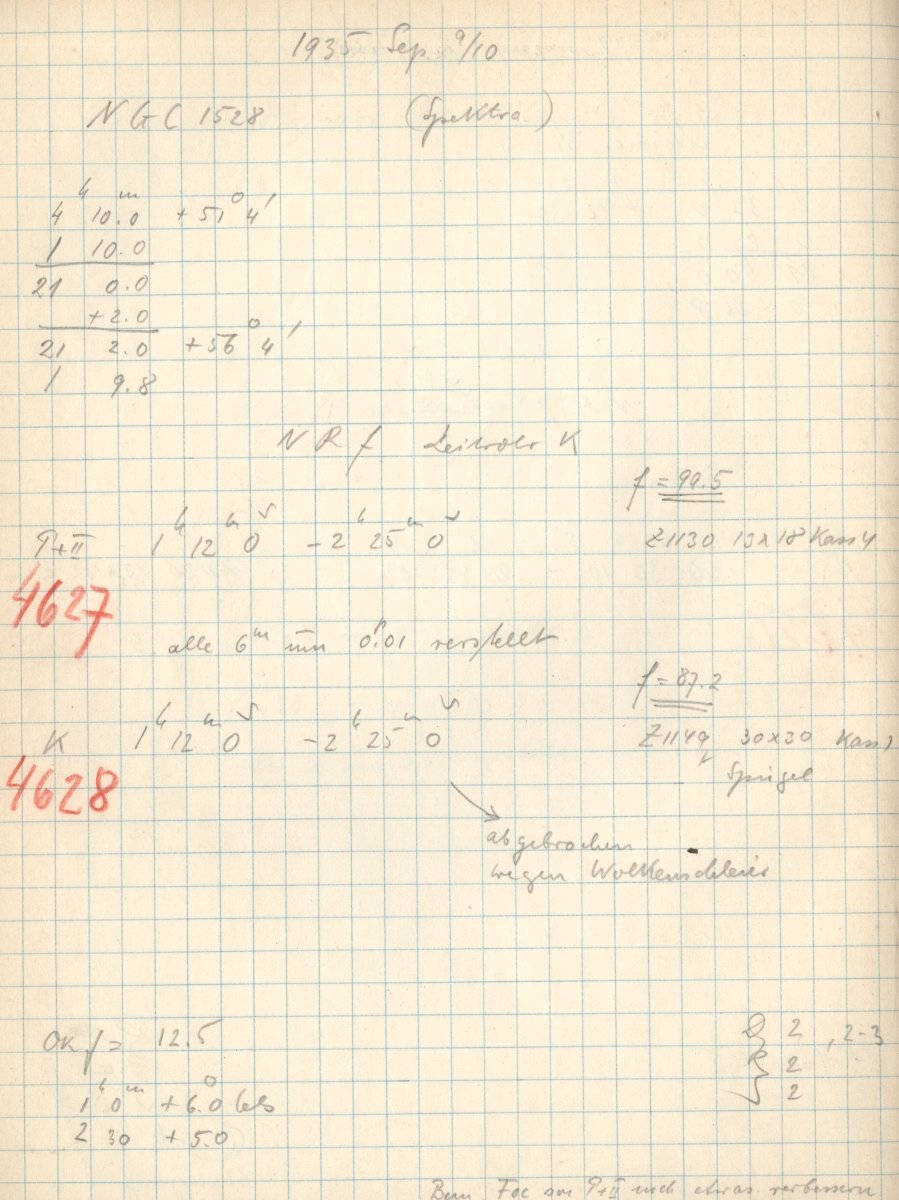 1935 Sep. 9/10
NGC 1528 (Spektra)
4ʰ 10.0ᵐ +51° 4'
1 10.0
21 0.0
+2.0
21 2.0 +56° 4'
1 9.8
NRf Leitrohr K
f = 99.5
P+II 1ʰ 12ᵐ 0ˢ – 2ʰ 25ᵐ 0ˢ Z1130 13x18 Kass 4
4627
alle 6ᵐ um 0.01 verstellt
f = 87.2
K 1ʰ 12ᵐ 0ˢ – 2ʰ 25ᵐ 0ˢ Z1149 30x30 Kass 1
4628
Spiegel
abgebrochen
wegen Wolkenschleier
Ok f = 12.5
D 2, 2-3
R 2
1ʰ 0ᵐ +6.0°
2
2 30 +5.0
Beim Foc von P+II noch etwas verbessern